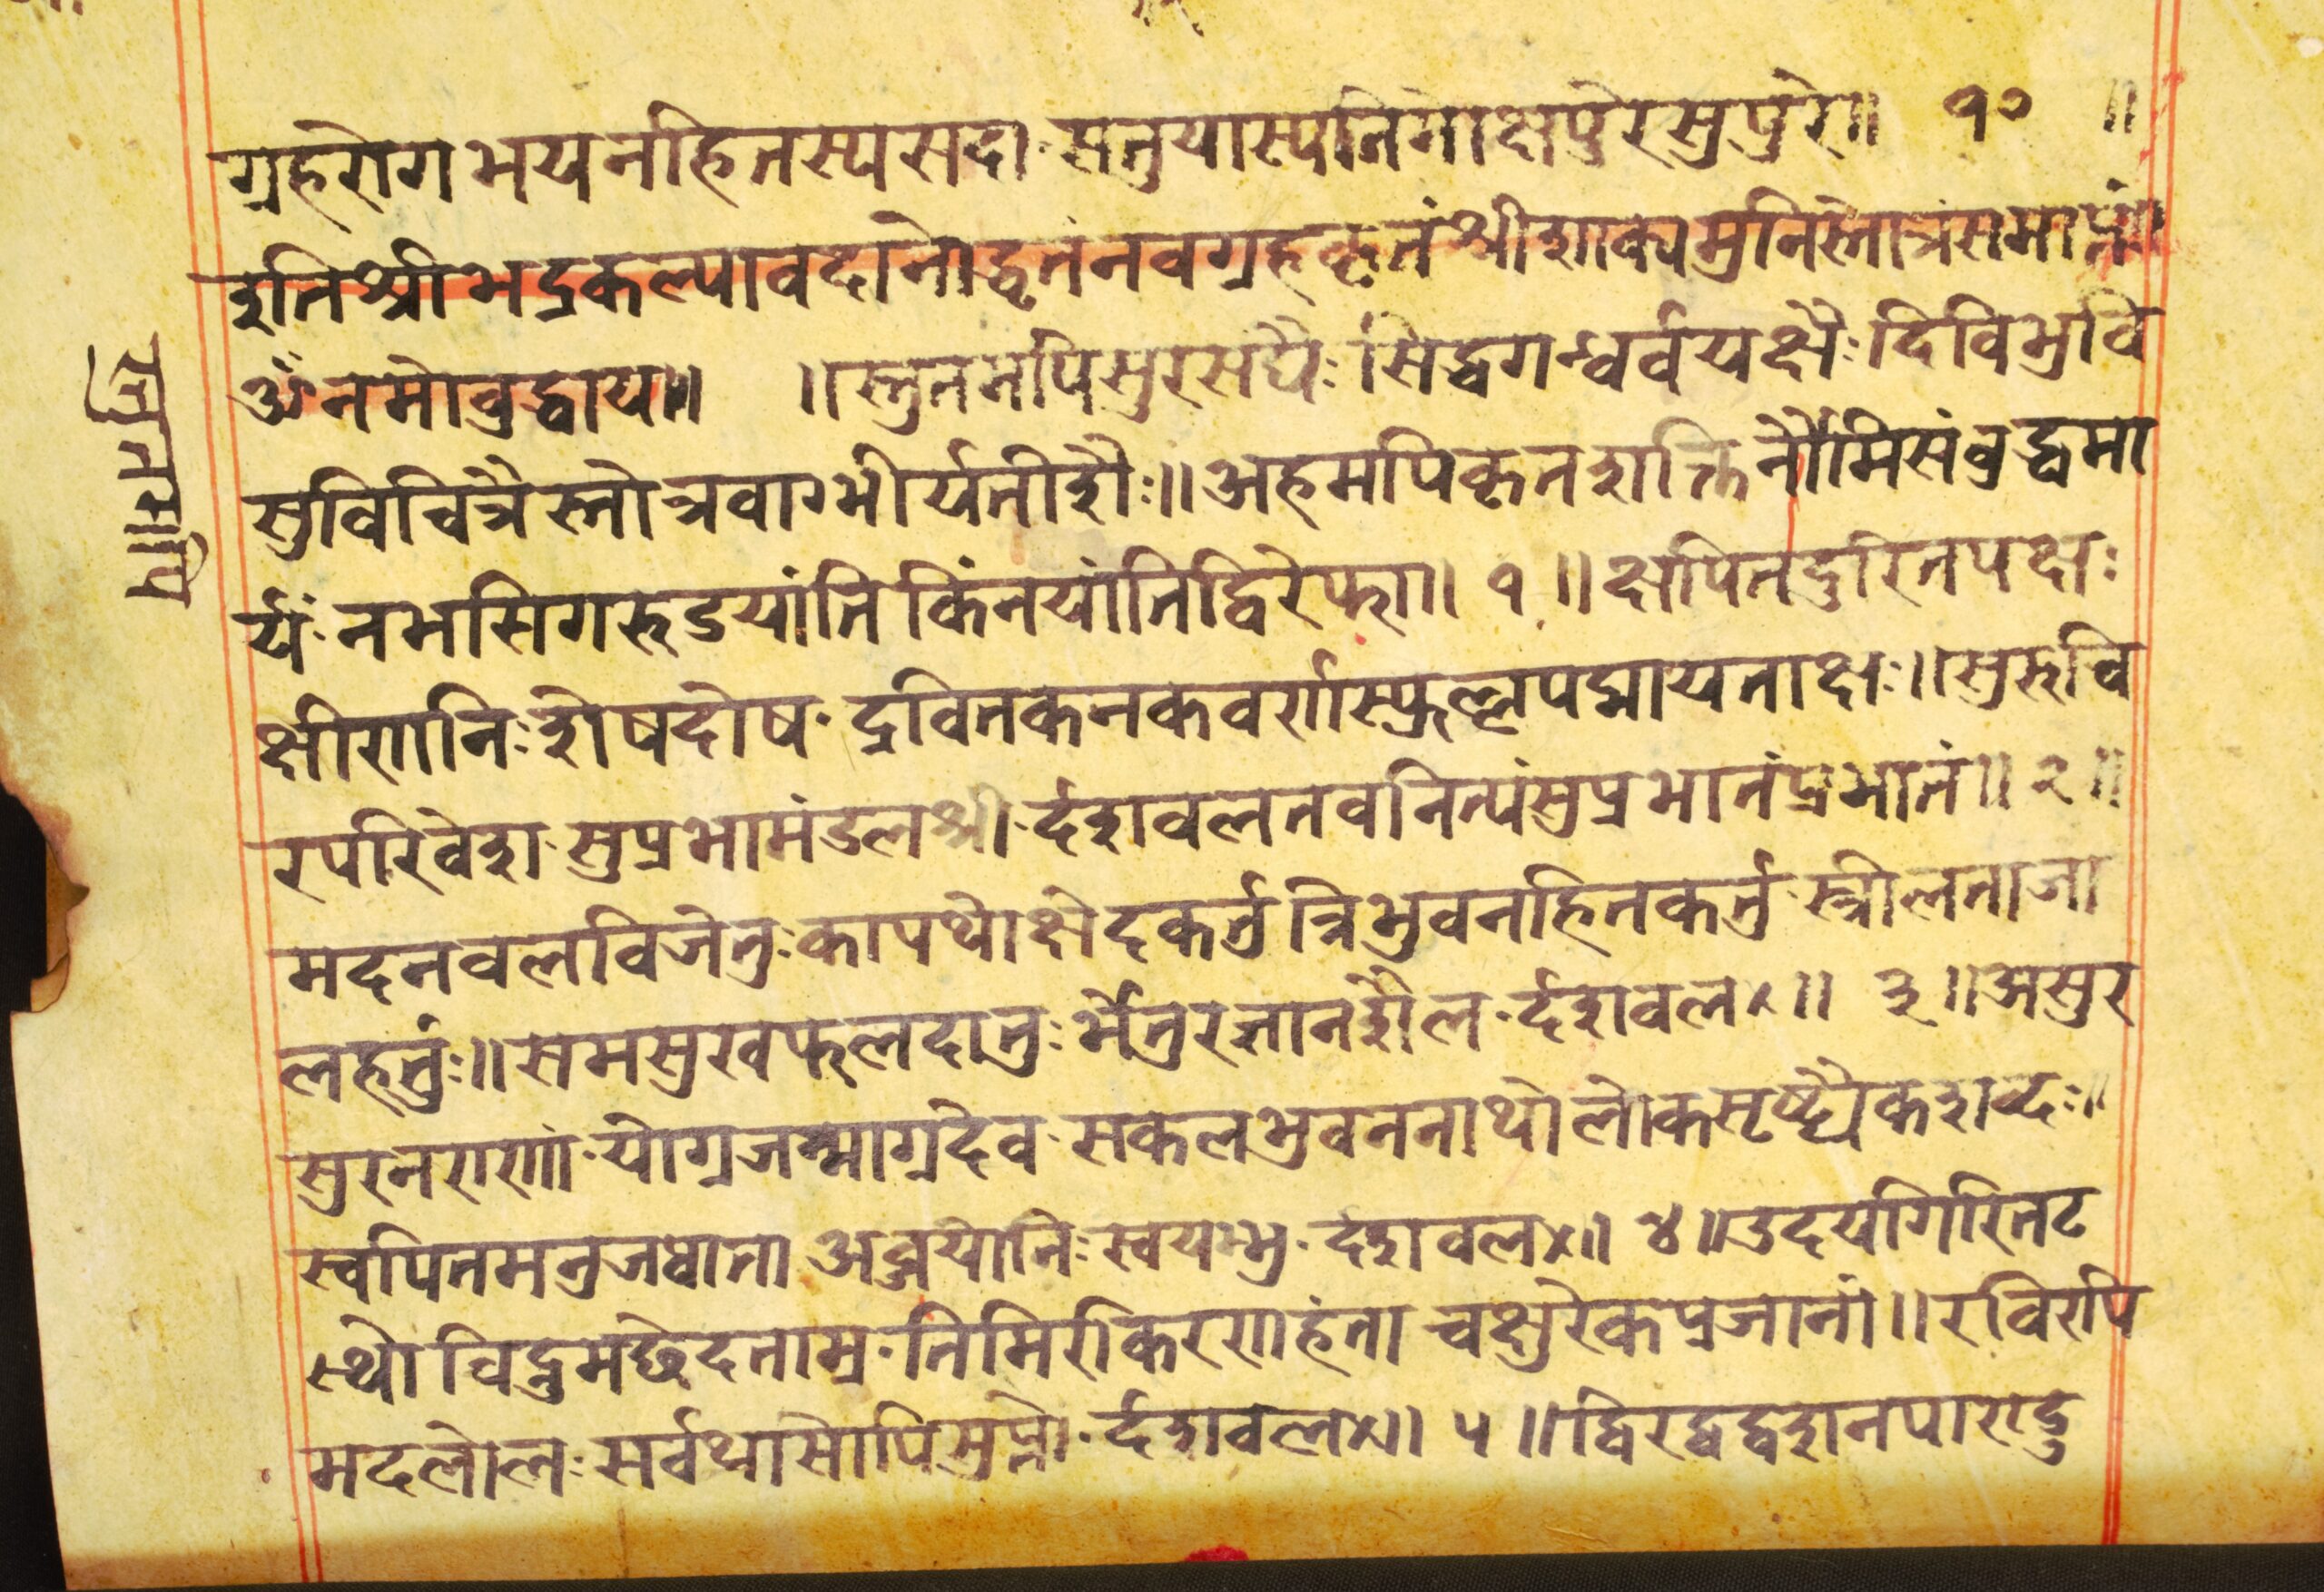 ग्रहरोगभयनहितस्यसदा·सतुयास्यतिमोक्षपुरेसुपुरे॥ १० ॥
इतिश्रीभद्रकल्पावदानोद्धृतंनवग्रहकृतंश्रीशाक्यमुनिस्तोत्रंसमाप्तं॥
ॐनमोवुद्धाय॥ ॥स्तुतमपिसुरसंघैःसिद्धगन्धर्वयक्षैःदिविभुवि
सुविचित्रैस्तोत्रवाग्भीर्यतीशैः॥अहमपिकृतशक्तिर्नौमिसंवुद्धमा
र्यं·नभसिगरुडयांतिकिंनयांतिद्विरेफा॥ १ ॥क्षपितदुरितपक्षः
क्षीणनिःशेषदोष·द्रवितकनकवर्णास्फुल्लपद्मायताक्षः॥सुरुचि
रपरिवेश·सुप्रभामंडलश्री·र्दशवलतवनित्यंसुप्रभातंप्रभातं॥ २॥
मदनवलविजेतुःकापथोक्षेदकर्तुत्रिभुवनहितकर्तु·स्त्रीलताजा
लहर्तुंः॥समसुखफलदातुःर्भेतुरज्ञानशैल·र्दशवल×॥ ३ ॥असुर
सुरनराणां·योग्रजन्माग्रदेव·सकलभुवननाथोलोकसृष्ट्यैकशब्दः॥
स्वपितमनुजधाता अब्जयोनिःस्वयम्भु·र्दशवल×॥ ४ ॥उदयगिरितट
स्थोविद्रुमछेदताम्र·तिमिरकिरणहंताचक्षुरेकप्रजानां॥रविरपि
मदलोलःसर्वथासोपिसुप्तो·र्दशवल×॥ ५ ॥द्विरदद्वदशनपाराण्डु
स्तुतमपि